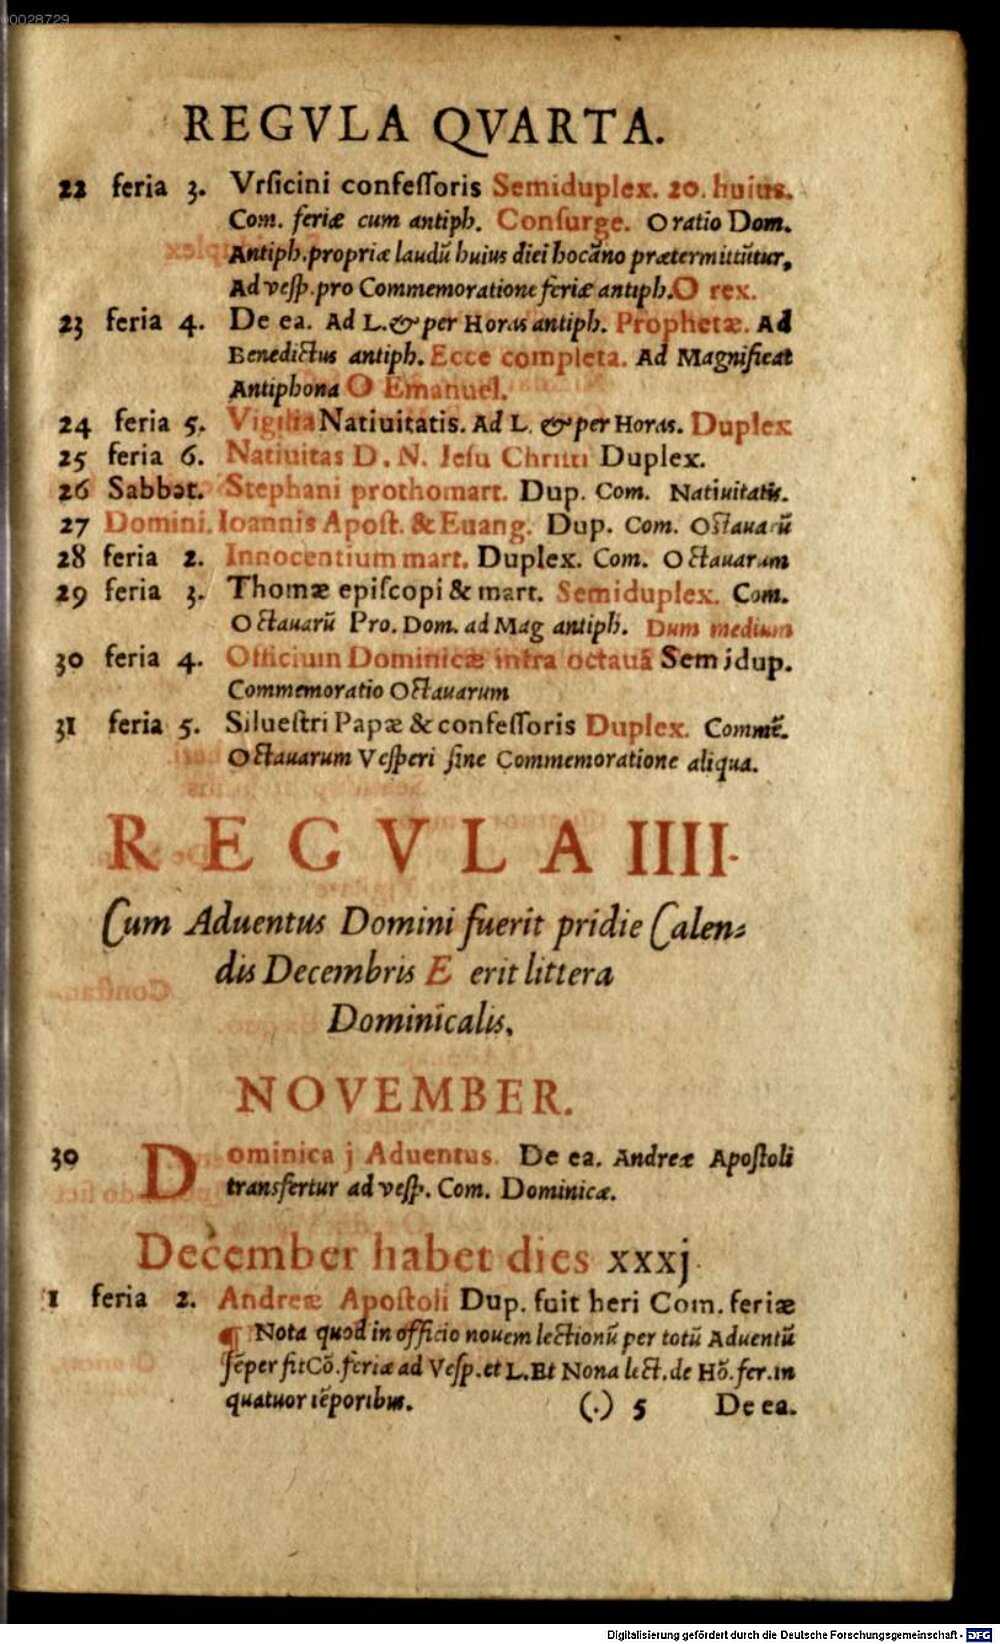 00028729
REGVLA QVARTA.
22 feria 3. Vrſicini confeſſoris Semiduplex. 20. huius.
Com. feriæ cum antiph. Conſurge. Oratio Dom.
Antiph. propriæ laudū huius diei hoc āno prætermittūtur,
Ad veſp. pro Commemoratione feriæ antiph. O rex.
23 feria 4. De ea. Ad L. & per Horas antiph. Prophetæ. Ad
Benedictus antiph. Ecce completa. Ad Magnificat
Antiphona O Emanuel.
24 feria 5. Vigilia Natiuitatis. Ad L. & per Horas. Duplex
25 feria 6. Natiuitas D. N. Ieſu Chriſti Duplex.
26 Sabbat. Stephani prothomart. Dup. Com. Natiuitatis.
27 Domini. Ioannis Apoſt. & Euang. Dup. Com. Octauarū
28 feria 2. Innocentium mart. Duplex. Com. Octauarum
29 feria 3. Thomæ epiſcopi & mart. Semiduplex. Com.
Octauarū Pro. Dom. ad Mag antiph. Dum medium
30 feria 4. Officium Dominicæ infra octauā Semidup.
Commemoratio Octauarum
31 feria 5. Silueſtri Papæ & confeſſoris Duplex. Commē.
Octauarum Veſperi ſine Commemoratione aliqua.
REGVLA IIII.
Cum Aduentus Domini fuerit pridie Calen-
dis Decembris E erit littera
Dominicalis.
NOVEMBER.
30 Dominica j Aduentus. De ea. Andreæ Apoſtoli
transfertur ad veſp. Com. Dominicæ.
December habet dies xxxj.
1 feria 2. Andreæ Apoſtoli Dup. fuit heri Com. feriæ
¶ Nota quod in officio nouem lectionū per totū Aduentū
ſēper fit Cō. feriæ ad Veſp. et L. Et Nona lect. de Hō. fer. in
quatuor tēporibus. (.) 5 De ea.
Digitalisierung gefördert durch die Deutsche Forschungsgemeinschaft - DFG